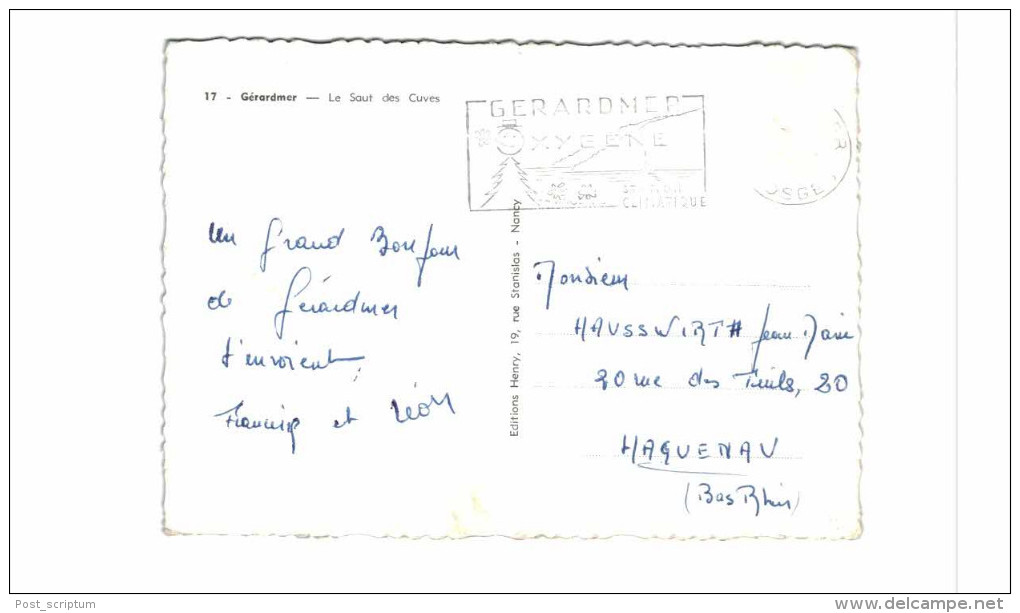 17 - Gérardmer — Le Saut des Cuves
GERARDMER
OXYGENE
STATION
CLIMATIQUE
Un Grand Bonjour
de Gérardmer
t'envoient
et Léon
Editions Henry, 19, rue Stanislas - Nancy
Monsieur
HAUSSWIRTH Jean Marie
20 rue des Tuiles, 20
HAGUENAU
(Bas Rhin)
Post_scriptum
delcampe.net